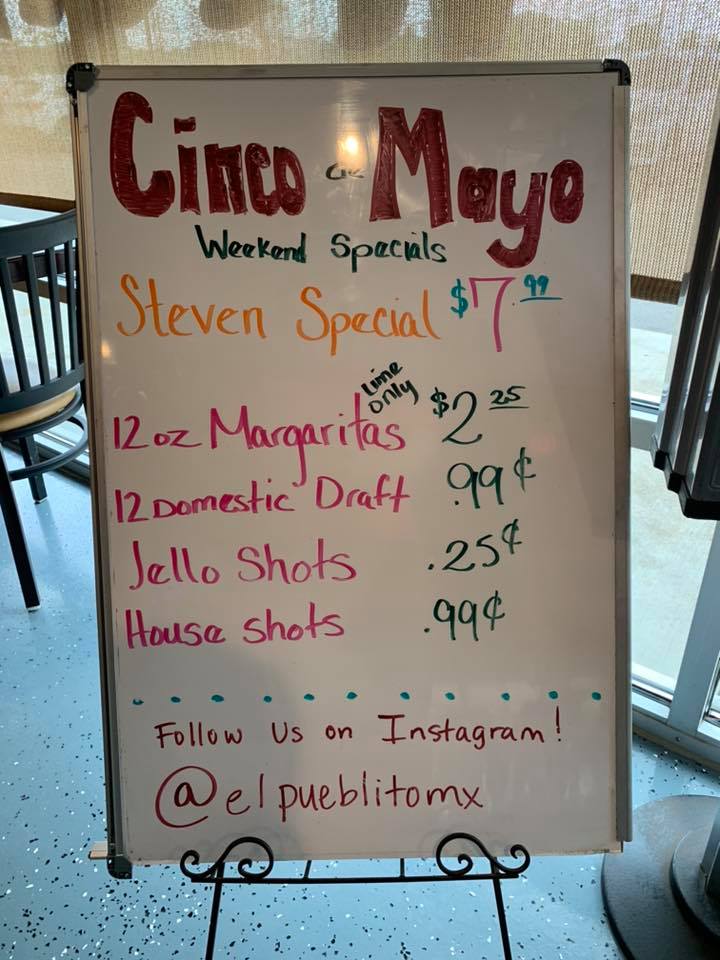 Cinco de Mayo
Weekend Specials
Steven Special $7.99
12oz Margaritas lime only $2 25
12 Domestic Draft .99¢
Jello Shots .25¢
House shots .99¢
Follow Us on Instagram!
@elpueblitomx